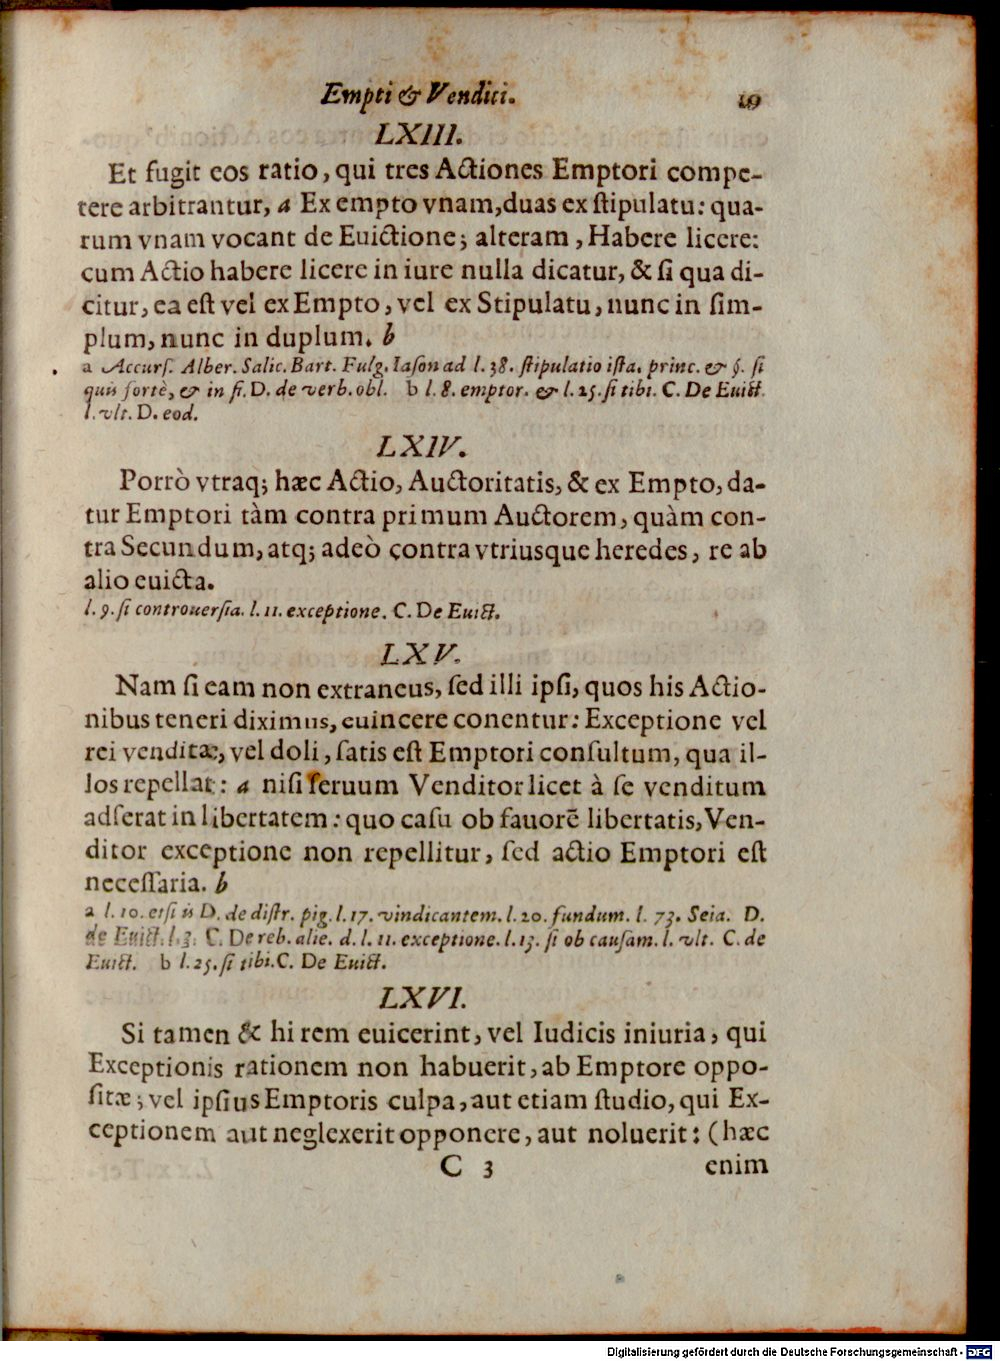 Empti & Venditi. 19
LXIII.
Et fugit eos ratio, qui tres Actiones Emptori compe-
tere arbitrantur, a Ex empto vnam, duas ex ſtipulatu: qua-
rum vnam vocant de Euictione; alteram, Habere licere:
cum Actio habere licere in iure nulla dicatur, & ſi qua di-
citur, ea eſt vel ex Empto, vel ex Stipulatu, nunc in ſim-
plum, nunc in duplum. b
a Accurſ. Alber. Salic. Bart. Fulg. Iaſon ad l. 38. ſtipulatio iſta. princ. & §. ſi
quis fortè, & in fi. D. de verb. obl. b l. 8. emptor. & l. 25. ſi tibi. C. De Euict.
l. vlt. D. eod.
LXIV.
Porrò vtraq; hæc Actio, Auctoritatis, & ex Empto, da-
tur Emptori tàm contra primum Auctorem, quàm con-
tra Secundum, atq; adeò contra vtriusque heredes, re ab
alio euicta.
l. 9. ſi controuerſia. l. 11. exceptione. C. De Euict.
LXV.
Nam ſi eam non extraneus, ſed illi ipſi, quos his Actio-
nibus teneri diximus, euincere conentur: Exceptione vel
rei venditæ, vel doli, ſatis eſt Emptori conſultum, qua il-
los repellat: a niſi ſeruum Venditor licet à ſe venditum
adſerat in libertatem: quo caſu ob fauorē libertatis, Ven-
ditor exceptione non repellitur, ſed actio Emptori eſt
neceſſaria. b
a l. 10. etſi is D. de diſtr. pig. l. 17. vindicantem. l. 20. fundum. l. 73. Seia. D.
de Euict. l. 3. C. De reb. alie. d. l. 11. exceptione. l. 13. ſi ob cauſam. l. vlt. C. de
Euict. b l. 25. ſi tibi. C. De Euict.
LXVI.
Si tamen & hi rem euicerint, vel Iudicis iniuria, qui
Exceptionis rationem non habuerit, ab Emptore oppo-
ſitæ; vel ipſius Emptoris culpa, aut etiam ſtudio, qui Ex-
ceptionem aut neglexerit opponere, aut noluerit: (hæc
C 3 enim
Digitalisierung gefördert durch die Deutsche Forschungsgemeinschaft - DFG